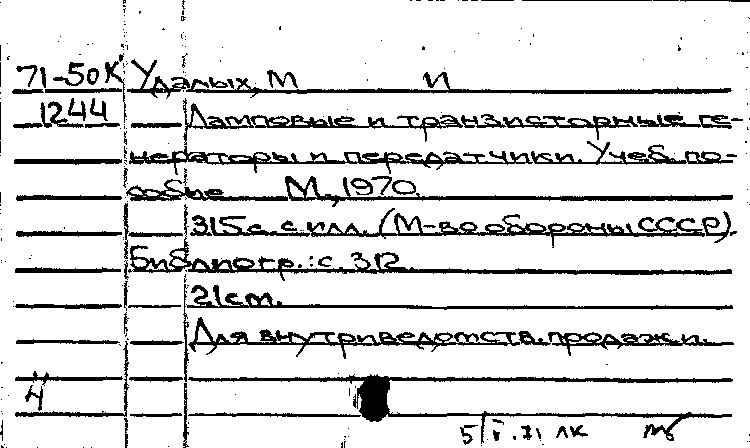 71-50К Удалых, М И
1244 Ламповые и транзисторные ге-
нераторы и передатчики. Учеб. по-
собие М., 1970.
315с. с илл. (М-во обороны СССР).
Библиогр.: с. 312.
21см.
Для внутриведомств. продажи.
5/V.71 ЛК